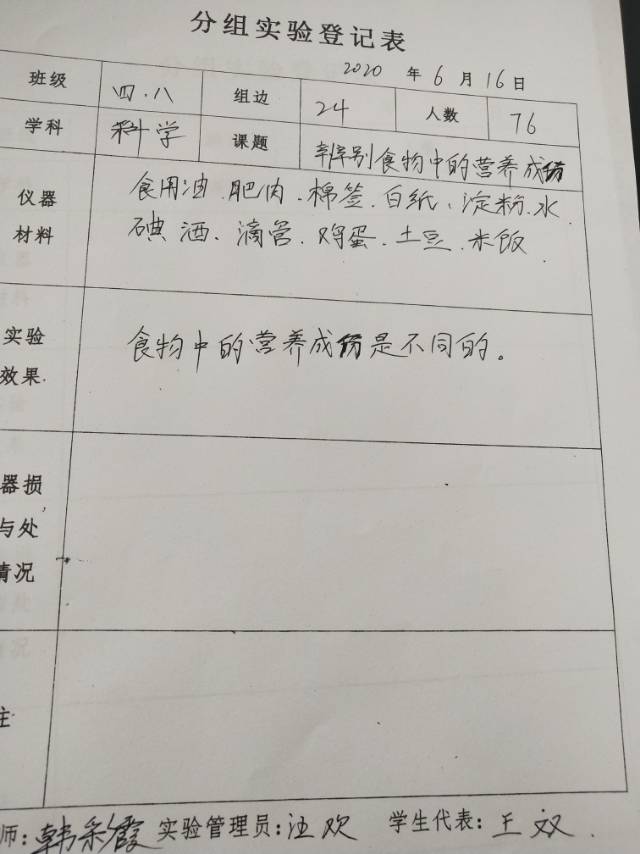 分组实验登记表
2020 年 6 月 16 日
班级 四.八 组边 24 人数 76
学科 科学 课题 辨别食物中的营养成份
仪器 食用油.肥肉.棉签.白纸、淀粉.水.
材料 碘酒、滴管.鸡蛋.土豆.米饭
实验 食物中的营养成份是不同的。
效果.
器损
与处
情况
注
师: 韩彩霞 实验管理员: 汪欢 学生代表: 王双.